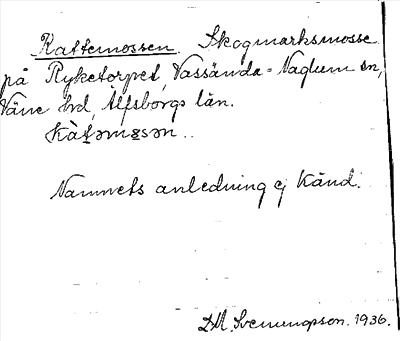 Kattemossen. Skogmarksmosse
på Ryketorpet, Vassända-Naglum sn,
Väne hd, Älfsborgs län.
Kàt̯əmɞsən..
Namnets anledning ej känd.
D.A. Svenungsson. 1936.